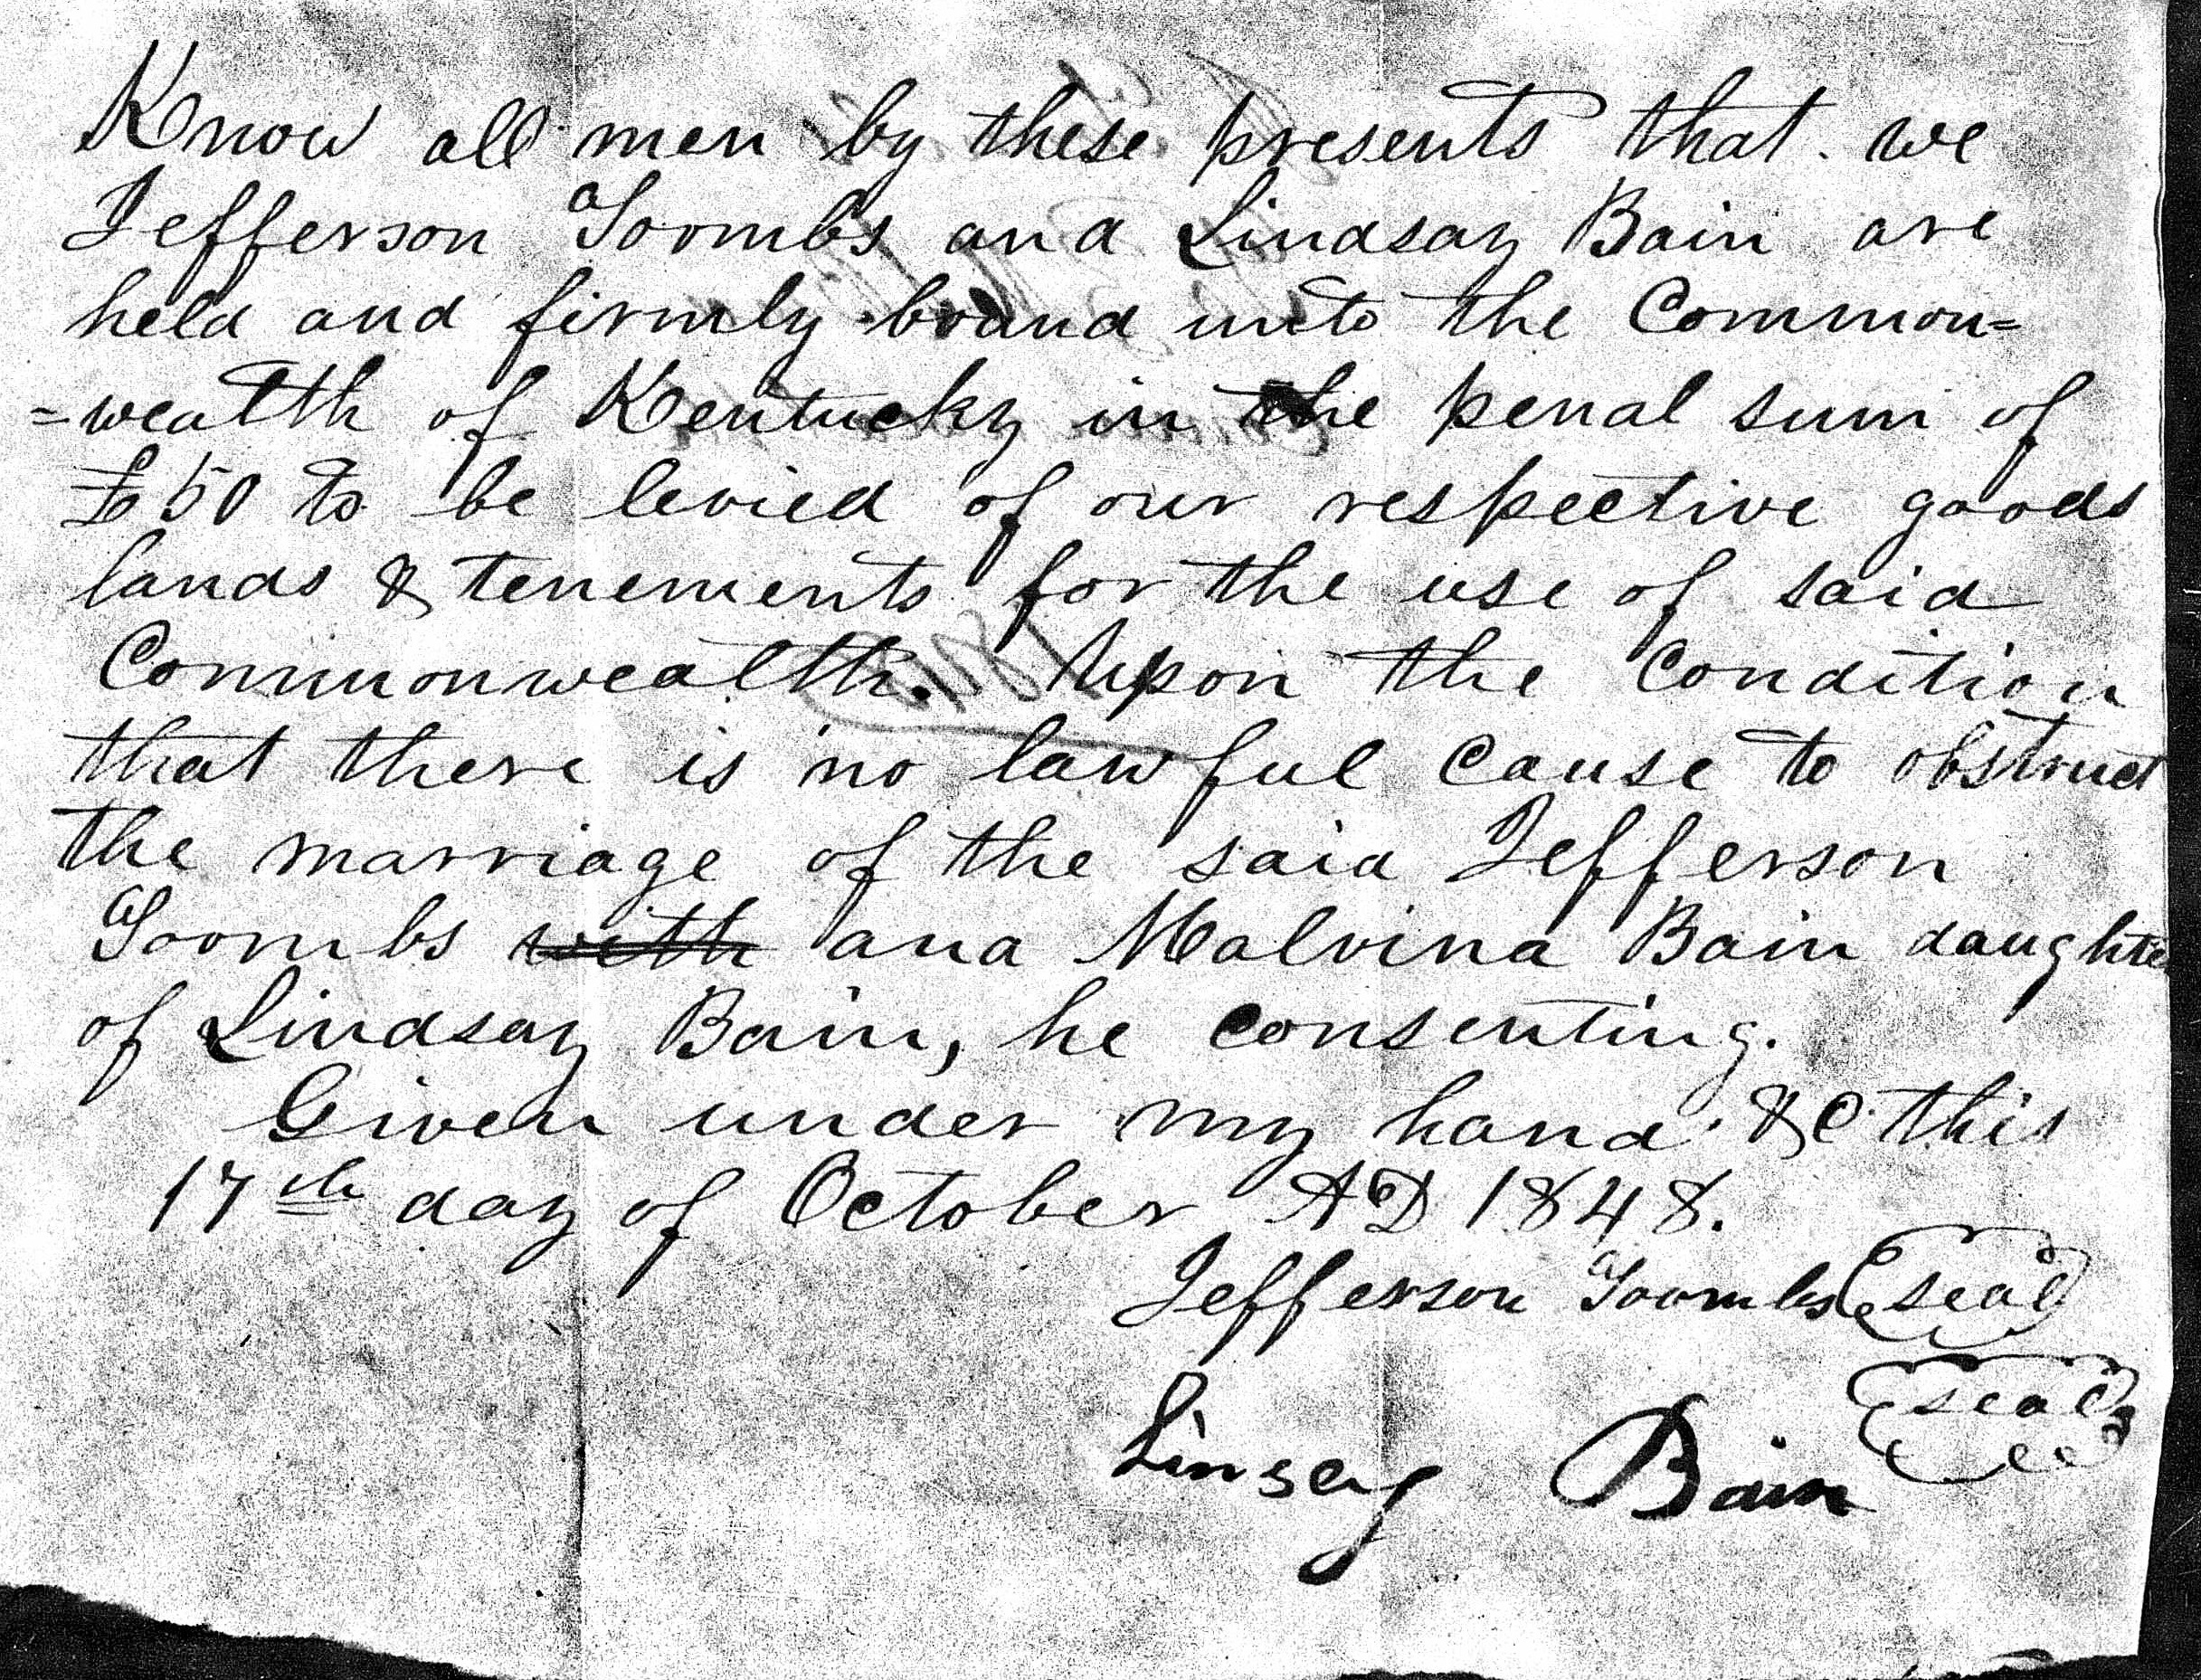 Know all men by these presents that we
Jefferson Toombs and Lindsay Bain are
held and firmly bound unto the Common=
=wealth of Kentucky in the penal sum of
£50 to be levied of our respective goods
lands & tenements for the use of said
Commonwealth. Upon the Condition
that there is no lawful Cause to obstruct
the marriage of the said Jefferson
Toombs with and Malvina Bain daughter
of Lindsay Bain, he Consenting.
Given under my hand &C this
17th day of October AD 1848.
Jefferson Toombs seal
Linsey Bain seal